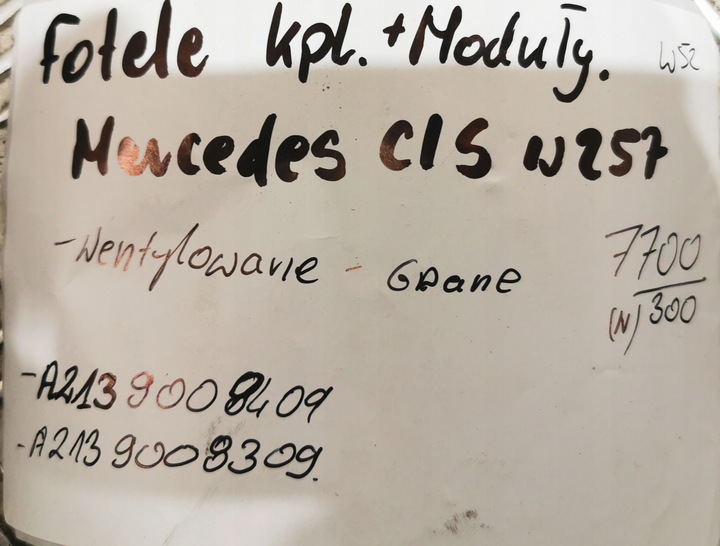 Fotele kpl. + Moduły.
W52
Mercedes ClS W257
- Wentylowanie - Grzane
7700
(N) 300
- A2139008409
- A2139008309.